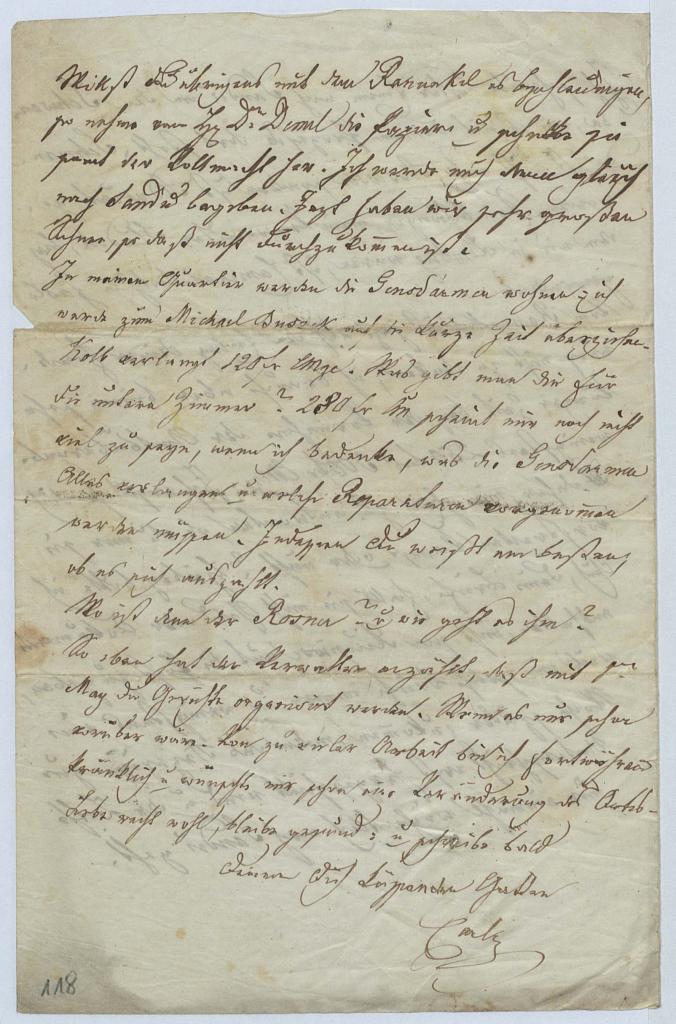 Willst Du übrigens mit dem es beschleunigen,
so nehme vom H. Dr. die Papiere u schicke sie
sammt der Vollmacht her. Ich werde mich dann gleich
nach begeben. Jetzt haben wir sehr großen
Schnee, so daß nicht durchzukommen ist.
In meinem Quartier werden die Gensdarmen wohnen; ich
werde zum Michael auf die kurze Zeit überziehen.
Kolb verlangt 120 fr Was gibt man Dir für
die untern Zimmer? 280 fr scheint mir noch nicht
viel zu seyn, wenn ich bedenke, was die Gensdarmen
Alles verlangen u welche Reparaturen vorgenommen
werden müssen. Indessen Du weißt am besten,
ob es sich auszahlt.
Wo ist denn der Rosner? u wie geht es ihm?
So eben hat der Verwalter erzählt, daß mit
May die Gerichte organisirt werden. Wenn es nur schon
vorüber wäre. Von zu vieler Arbeit bin ich fortwährend
kränklich u wünschte mir schon eine Veränderung des
Lebe recht wohl, bleibe gesund; u schreibe bald
Deinem Dich küssenden Gatten
Carl
118